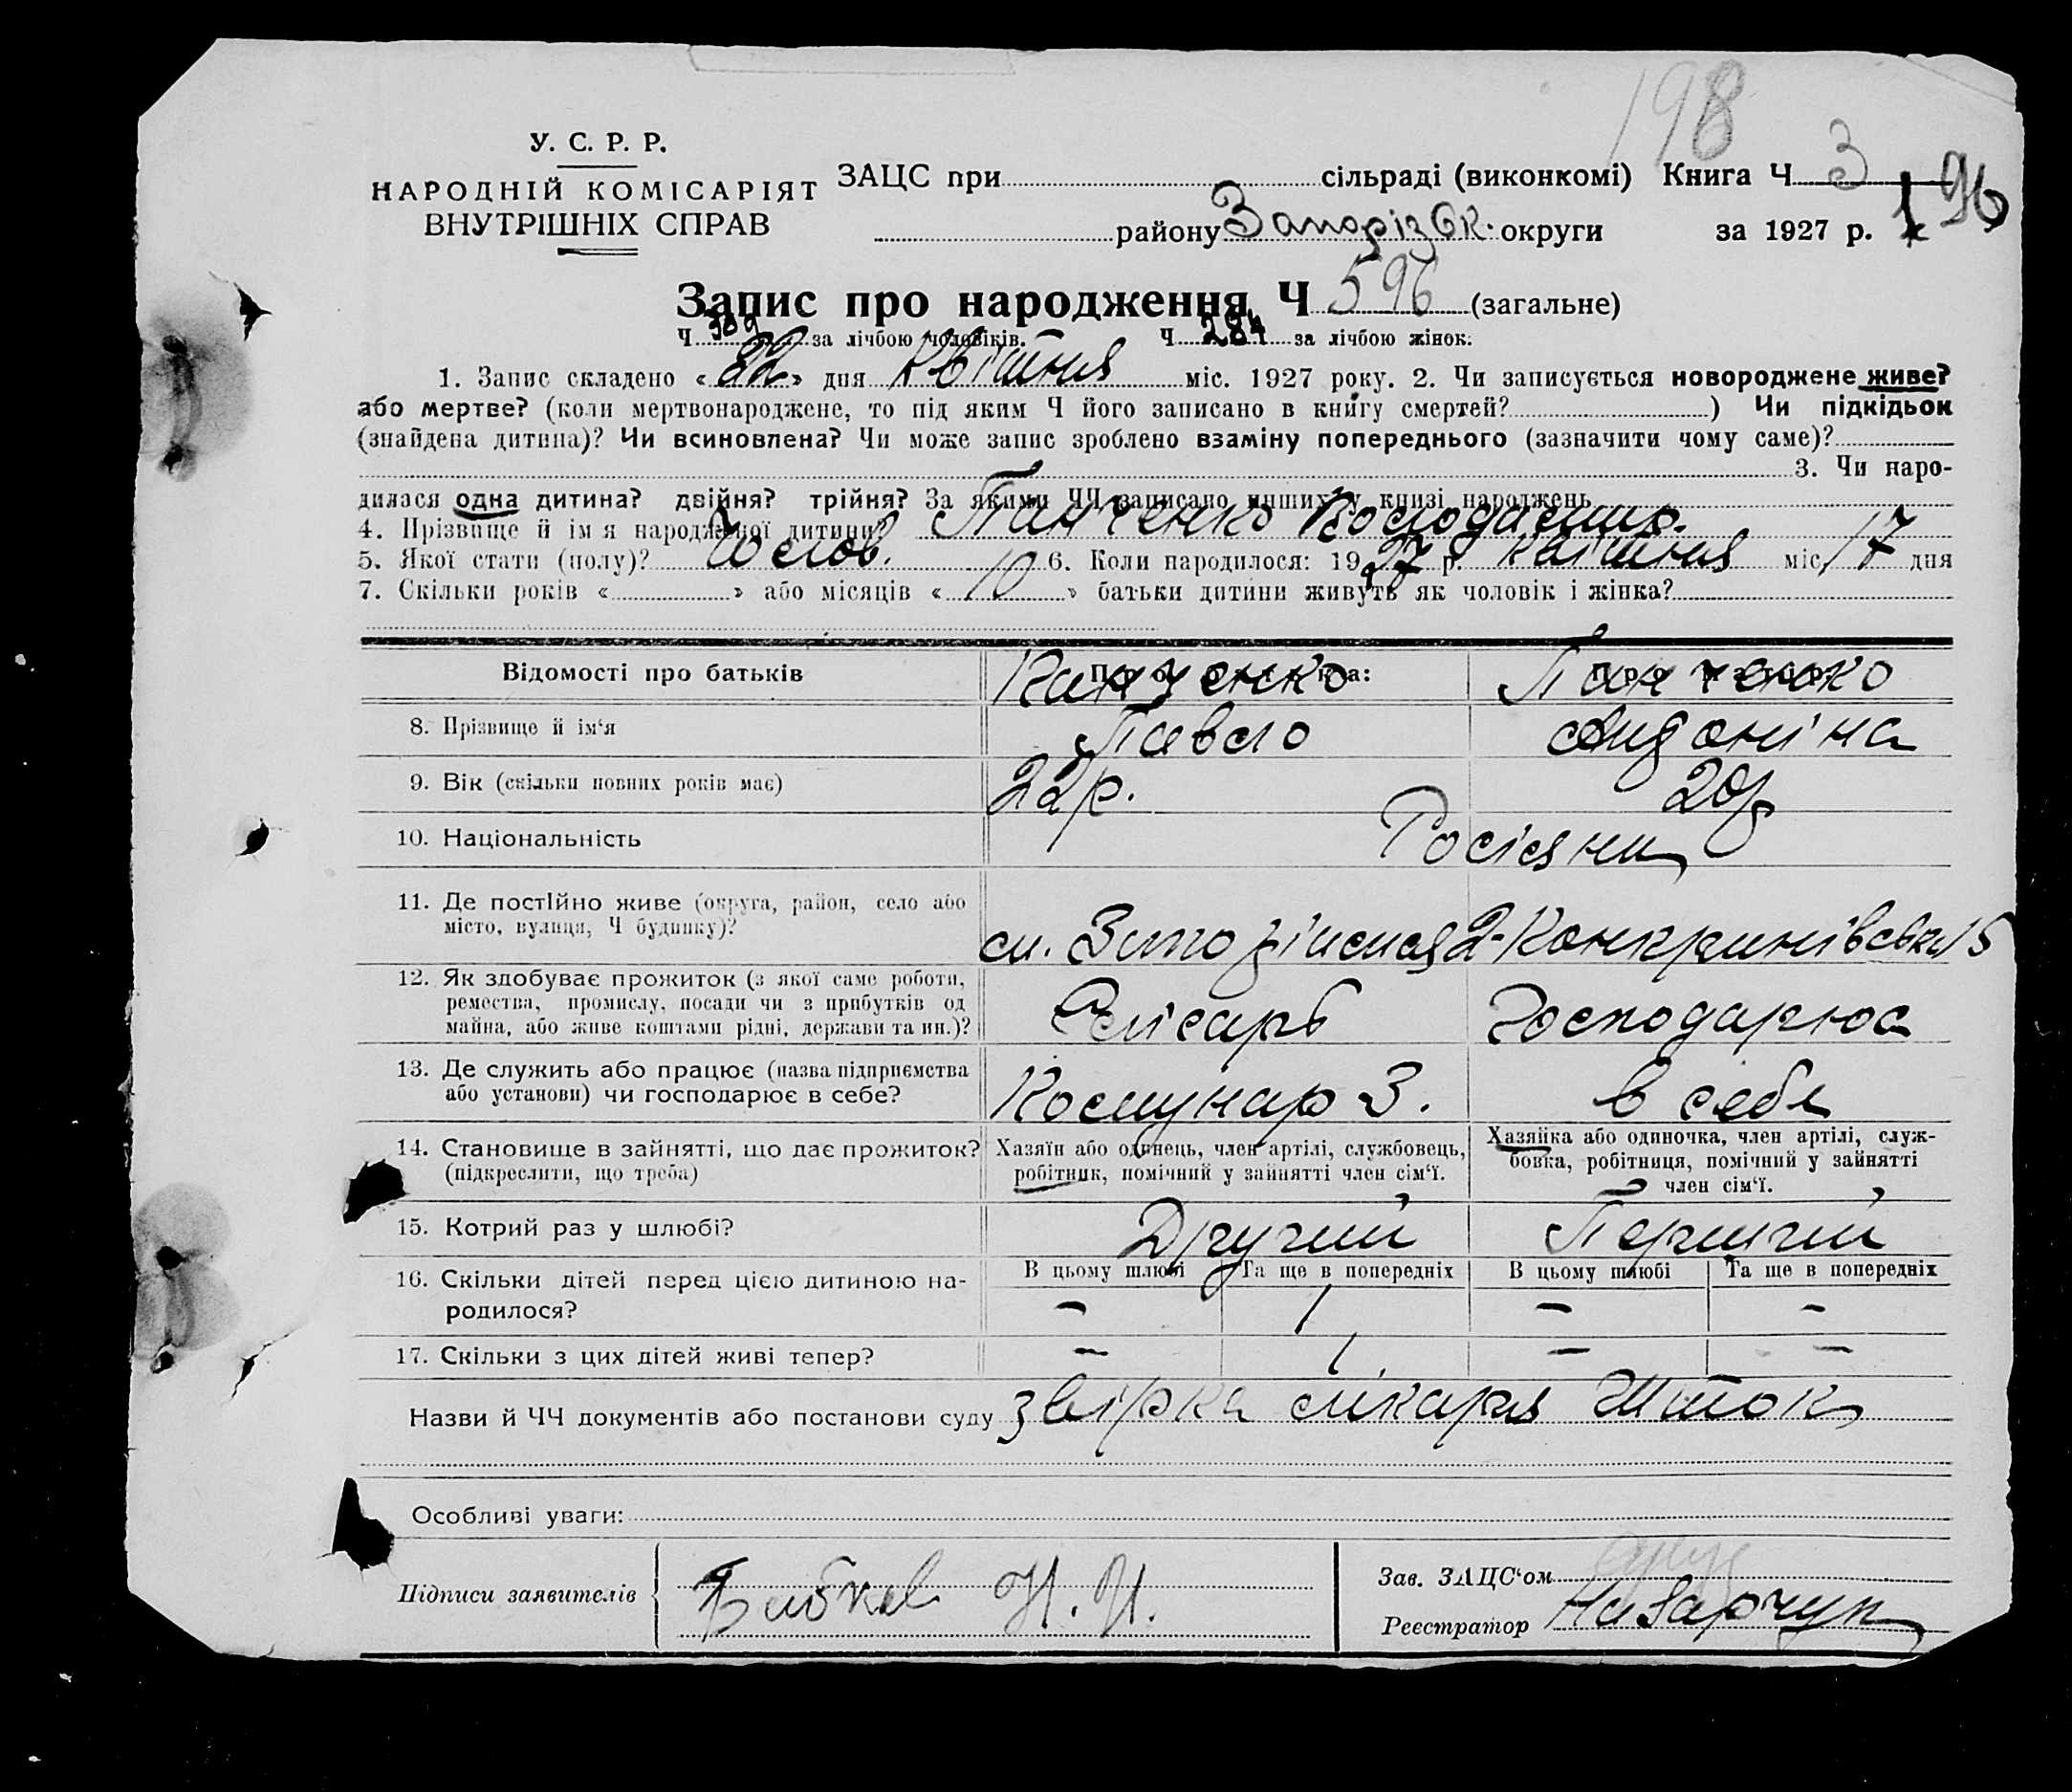 198
У. С. Р. Р.
НАРОДНІЙ КОМІСАРІЯТ
ВНУТРІШНІХ СПРАВ
ЗАЦС при сільраді (виконкомі) Книга Ч 3
району Запорізьк. округи за 1927 р. 196
Запис про народження Ч 596 (загальне)
Ч 309 за лічбою чоловіків. Ч 284 за лічбою жінок.
1. Запис складено « 22 » дня квітня міс. 1927 року. 2. Чи записується новороджене живе?
або мертве? (коли мертвонароджене, то під яким Ч його записано в книгу смертей? ) Чи підкідьок
(знайдена дитина)? Чи всиновлена? Чи може запис зроблено взаміну попереднього (зазначити чому саме)?
3. Чи наро-
дилася одна дитина? двійня? трійня? За якими ЧЧ записано инших у книзі народжень
4. Прізвище й ім я народженої дитини? Панченко
5. Якої стати (полу)? Чолов. 6. Коли народилося: 19 27 р. квітня міс. 17 дня
7. Скільки років « » або місяців « 10 » батьки дитини живуть як чоловік і жінка?
Відомості про батьків Панченко Панченко
8. Прізвище й ім'я Павло Андоніна
9. Вік (скільки повних років має) 22р. 20р
10. Національність Росіяни
11. Де постійно живе (округа, район, село або
місто, вулиця, Ч будинку)? 15
12. Як здобуває прожиток (з якої саме роботи,
ремества, промислу, посади чи з прибутків од
майна, або живе коштами рідні, держави та ин.)? Слісарь Господарює
13. Де служить або працює (назва підприємства
або установи) чи господарює в себе? Комунар З. в себе
14. Становище в зайнятті, що дає прожиток?
(підкреслити, що треба)
Хазяїн або одинець, член артілі, службовець,
робітник, помічний у зайнятті член сім'ї.
Хазяйка або одиночка, член артілі, служ-
бовка, робітниця, помічний у зайнятті
член сім'ї.
15. Котрий раз у шлюбі? Другий Перший
16. Скільки дітей перед цією дитиною на-
родилося?
В цьому шлюбі Та ще в попередніх В цьому шлюбі Та ще в попередніх
– 1 – –
17. Скільки з цих дітей живі тепер? – 1. – –
Назви й ЧЧ документів або постанови суду звірка лікаря Шток
Особливі уваги:
Підписи заявителів Н. И.
Зав. ЗАЦС'ом
Реєстратор Назарчук